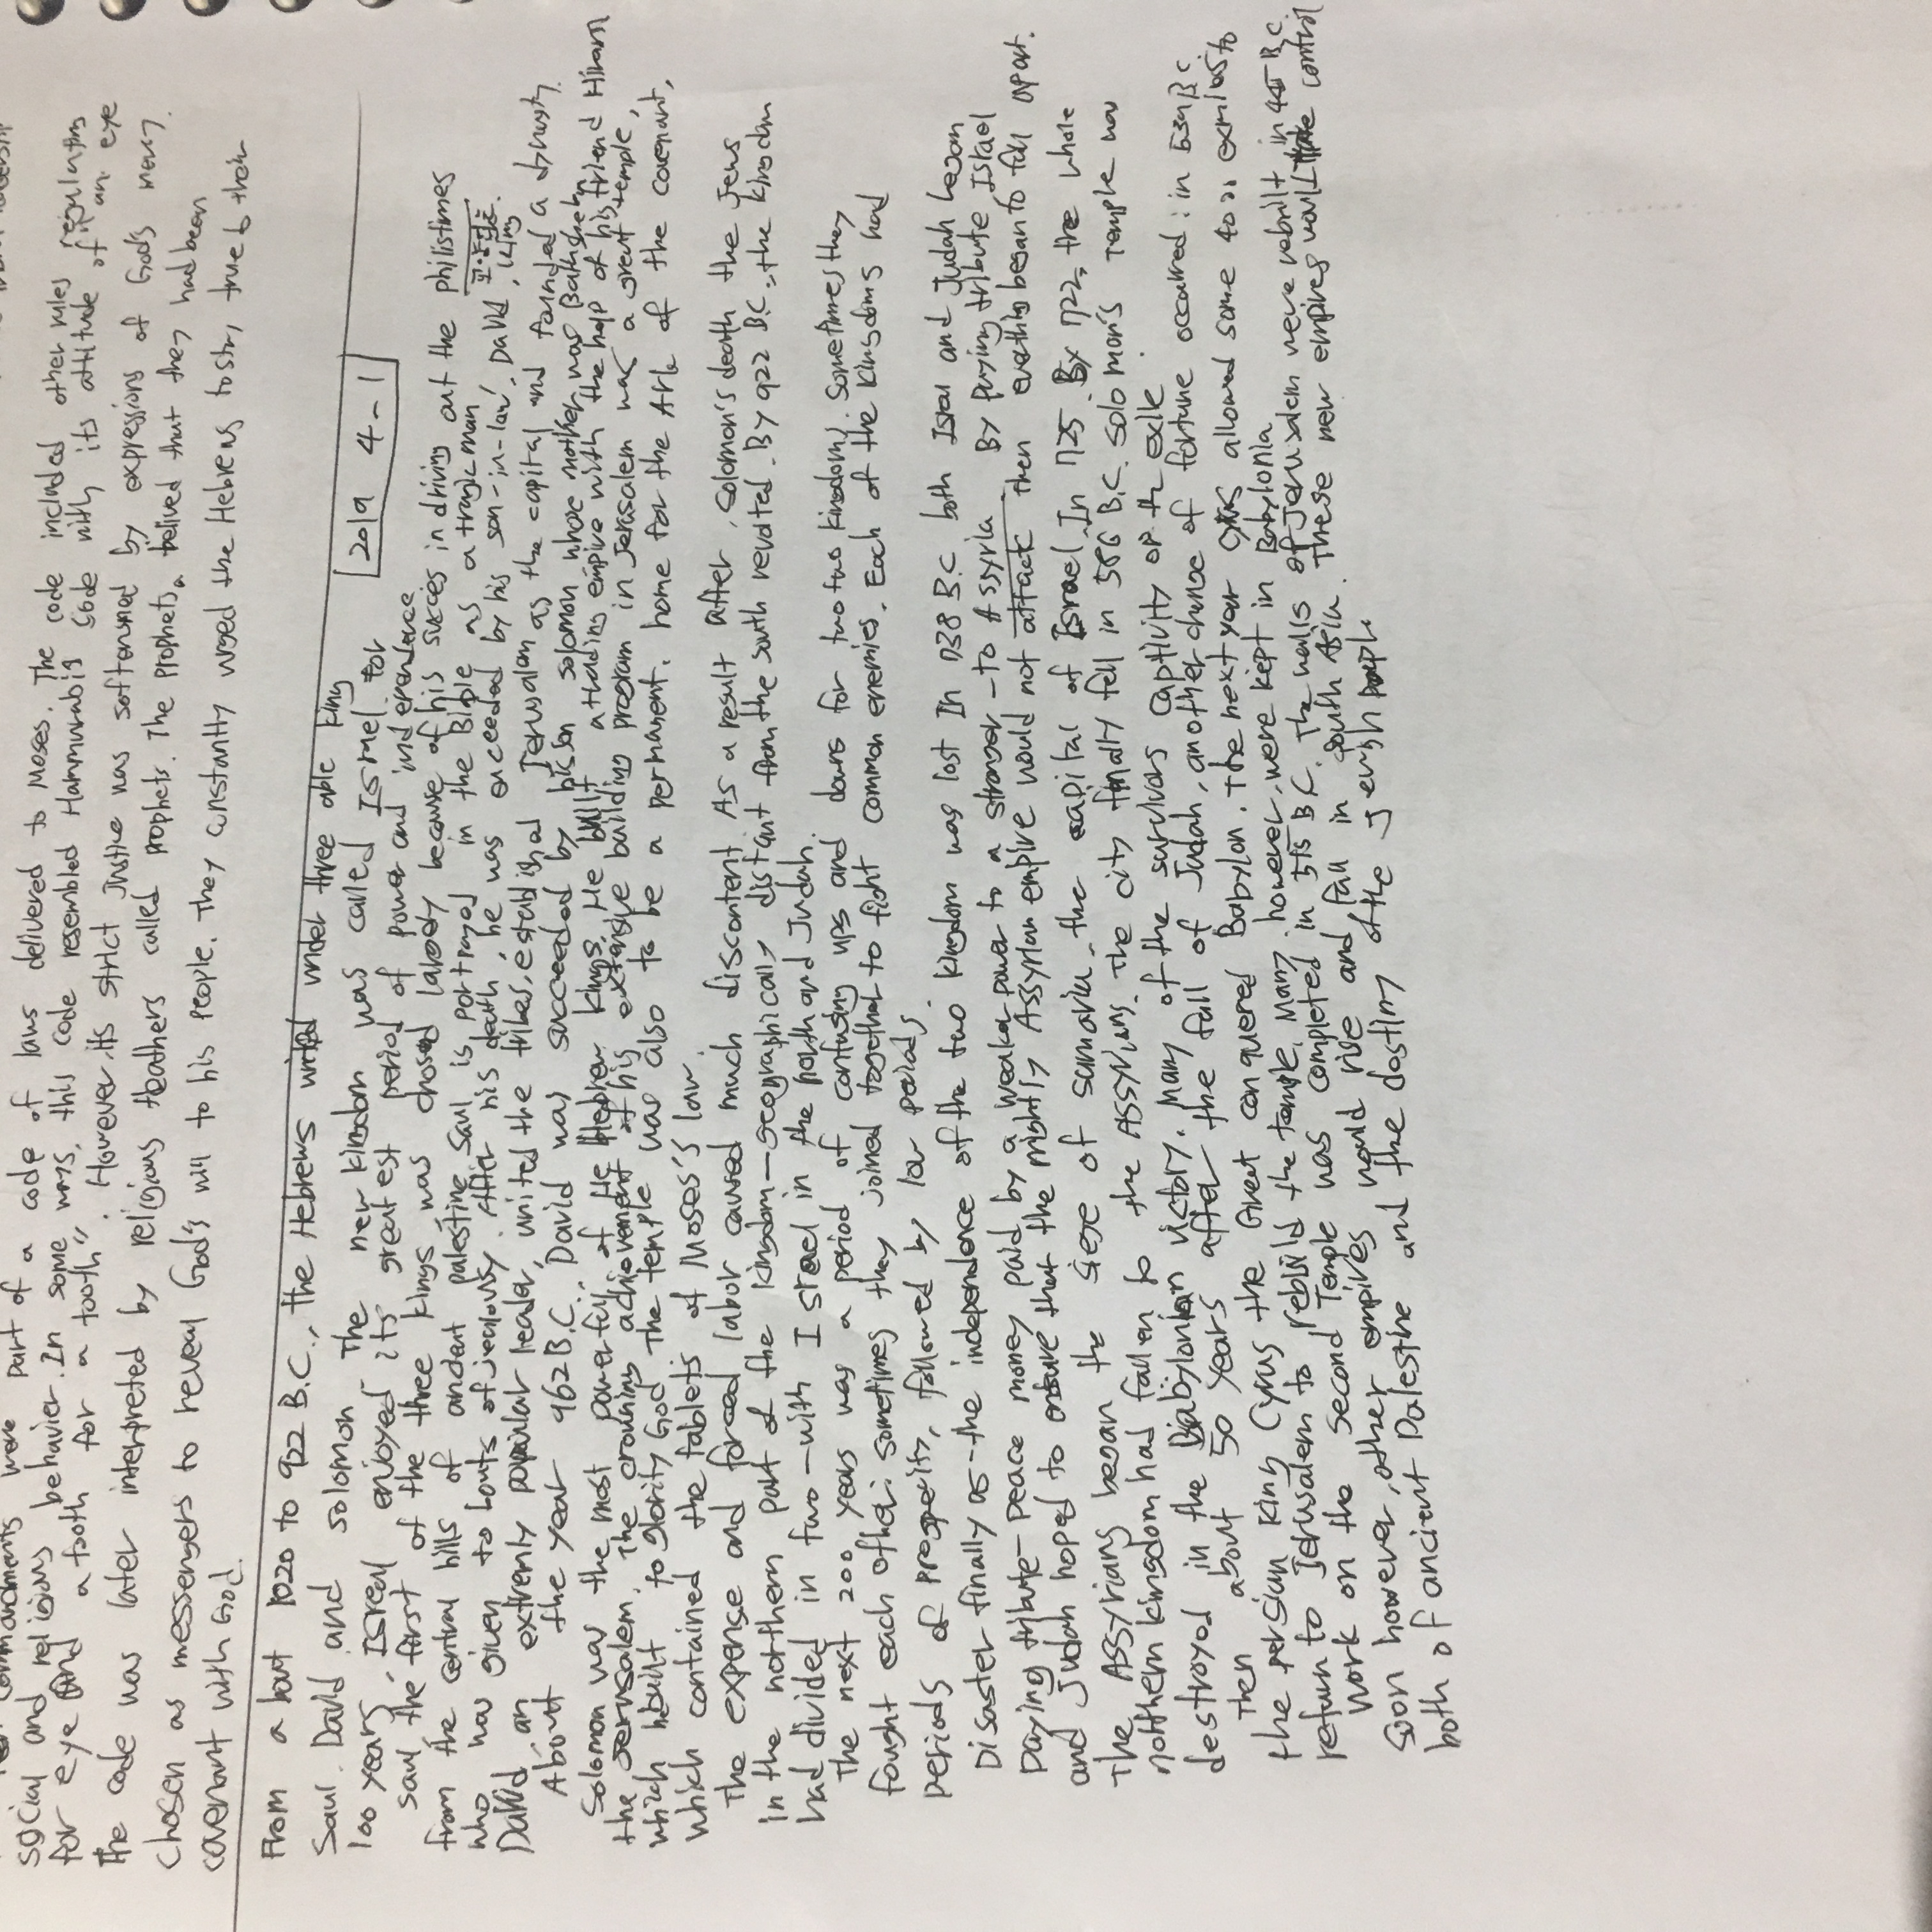 commandments were part of a code of laws delivered to Moses. The code included other rules regulating
social and religious behavier. In some ways, this code resembled Hammurabig Gode with its attitude of an eye
for eye and a tooth for a tooth". However, its strict Justice was softenmed by expressions of God's mercy.
The code was later interpreted by religious theathers called prophets. The prophets, belived that they had been
chosen as messengers to reveal God's will to his people. They constantly urged the Hebrews to stay true to their
covenant with God.
2019 4-1
From a bout 1020 to 922 B.C., the Hebrews united under three able king
Saul. David and solomon The new kingdom was called Israel for
100 years, Isreal enjoyed its great est period of power and independence
saul the first of the three kings was chosed largely because of his succes in driving out the philistimes
from the central hills of andent palestine Saul is portrayed in the Bible as a tragic man
who was given to bouts of jealousy. After his death, he was succeeded by his son-in-law. David, king
David an extremly popular leader, united the tribes, established Jerusalam as the capital and founded a dynasty.
About the year 962 B.C. David was succeeded by his son solomon whose mother was Bathsheba
Solomon was the most powerful of the Hebrew kings. He built a trading empire with the help of his friend Hiram
the Jerusalem. The crowning achievement of his extensive building program in Jerasalem was a great temple,
which he built to glority God The temple was also to be a permanent. home for the Ark of the covenant,
which contained the tablets of Moses's law.
The expense and forced labor caused much discontent. As a result after, Solomon's death the Jews
in the northern part of the kingdom-geographically distant from the south revolted. By 922 B.C., the kingdom
had divided in two-with Israel in the north and Judah.
The next 200 years was a period of confusing ups and downs for two two kingdoms. Sometimes they
fought each other: sometimes they joined together to fight common enemies. Each of the kingdoms had
periods of prosperity, followed by low periods.
Disaster finally as-the independence of the two kingdom was lost In 738 B.C both Isreal and Judah began
paying tribute-peace money paid by a weaker power to a stronger-to Assyria By paying tribute Israel
and Judah hoped to ensure that the mightly Assyrian empire would not attack then everthing began to fall apart.
The Assyrians began the siege of samaria, the capital of Israel. In 725. By 722, the whole
northern kingdom had fallen to the Assyrians. The city finally fell in 586 B.C. Solomon's Temple was
destroyed in the Babylonian victory. Many of the survivors captivity or the exile
Then about 50 years after the fall of Judah, another change of fortune occurred: in 539 B.C.
the persian king Cyrus the Great conquered Babylon. The next year Cyrus allowed some 40,000 exniles to
return to Jerusalem to rebuild the temple. Many however, were kept in Babylonia
Work on the second Temple was completed in 515 B.C. The walls of Jerusalem were rebuilt in 445 B.C.
Soon however, other empires would rise and fall in South Asia. These new empires would take control
both of ancient Palestine and the destiny of the Jewish people